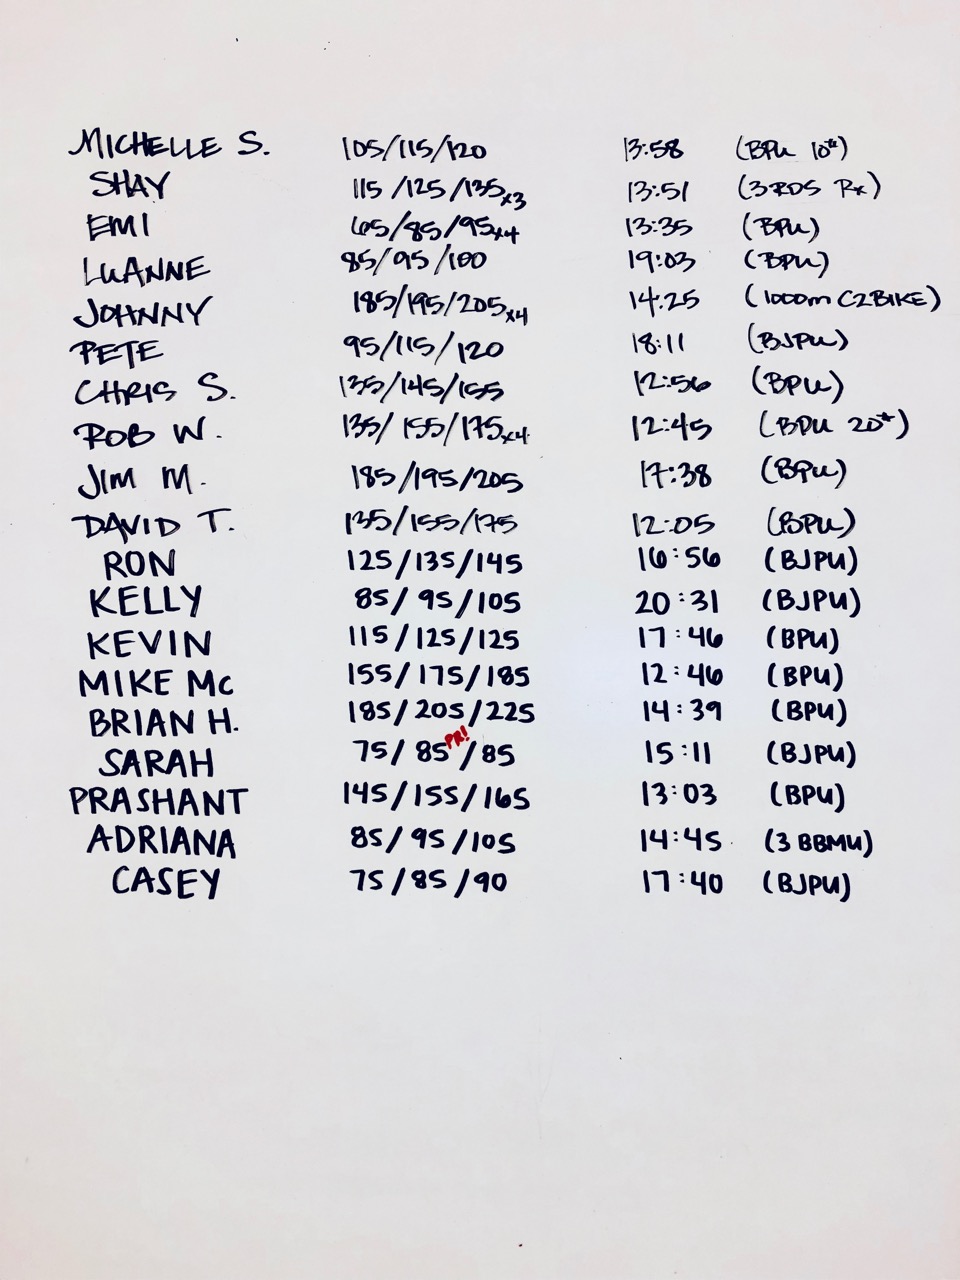 MICHELLE S. 105/115/120 13:58 (BPU 10#)
SHAY 115/125/135x3 13:51 (3 RDS Rx)
EMI 65/85/95x4 13:35 (BPU)
LUANNE 85/95/100 19:03 (BPU)
JOHNNY 185/195/205x4 14:25 (1000m C2BIKE)
PETE 95/115/120 18:11 (BJPU)
CHRIS S. 135/145/155 12:56 (BPU)
ROB W. 135/155/175x4 12:45 (BPU 20#)
JIM M. 185/195/205 17:38 (BPU)
DAVID T. 135/155/175 12:05 (BPU)
RON 125/135/145 16:56 (BJPU)
KELLY 85/95/105 20:31 (BJPU)
KEVIN 115/125/125 17:46 (BPU)
MIKE Mc 155/175/185 12:46 (BPU)
BRIAN H. 185/205/225 14:39 (BPU)
SARAH 75/85 PR!/85 15:11 (BJPU)
PRASHANT 145/155/165 13:03 (BPU)
ADRIANA 85/95/105 14:45 (3 BBMU)
CASEY 75/85/90 17:40 (BJPU)